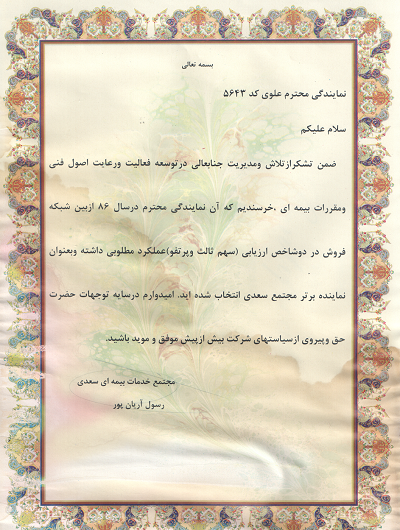 بسمه تعالی
نمایندگی محترم علوی کد ۵۶۴۳
سلام علیکم
ضمن تشکرازتلاش ومدیریت جنابعالی درتوسعه فعالیت ورعایت اصول فنی
ومقررات بیمه ای ،خرسندیم که آن نمایندگی محترم درسال ۸۶ ازبین شبکه
فروش در دوشاخص ارزیابی (سهم ثالث وپرتفو)عملکرد مطلوبی داشته وبعنوان
نماینده برتر مجتمع سعدی انتخاب شده اید. امیدوارم درسایه توجهات حضرت
حق وپیروی ازسیاستهای شرکت بیش ازپیش موفق و موید باشید.
مجتمع خدمات بیمه ای سعدی
رسول آریان پور